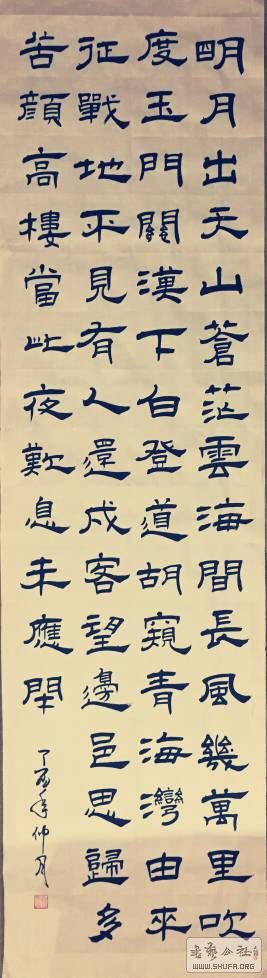 明月出天山蒼茫雲海間長風幾萬里吹
度玉門關漢下白登道胡窺青海灣由來
征戰地不見有人還戍客望邊邑思歸多
苦顏高樓當此夜歎息未應閑
丁酉年仲月
书艺公社
WWW.SHUFA.ORG